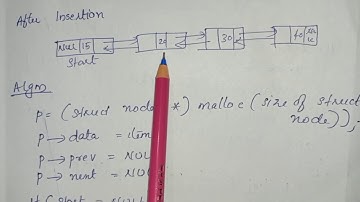 After Insertion
NULL 15 20 30 40
Start
Algm
p = (struct node *) malloc (size of struct
node));
p → data = item
p → prev = NUL
p → next = NULL
if (start = NULL